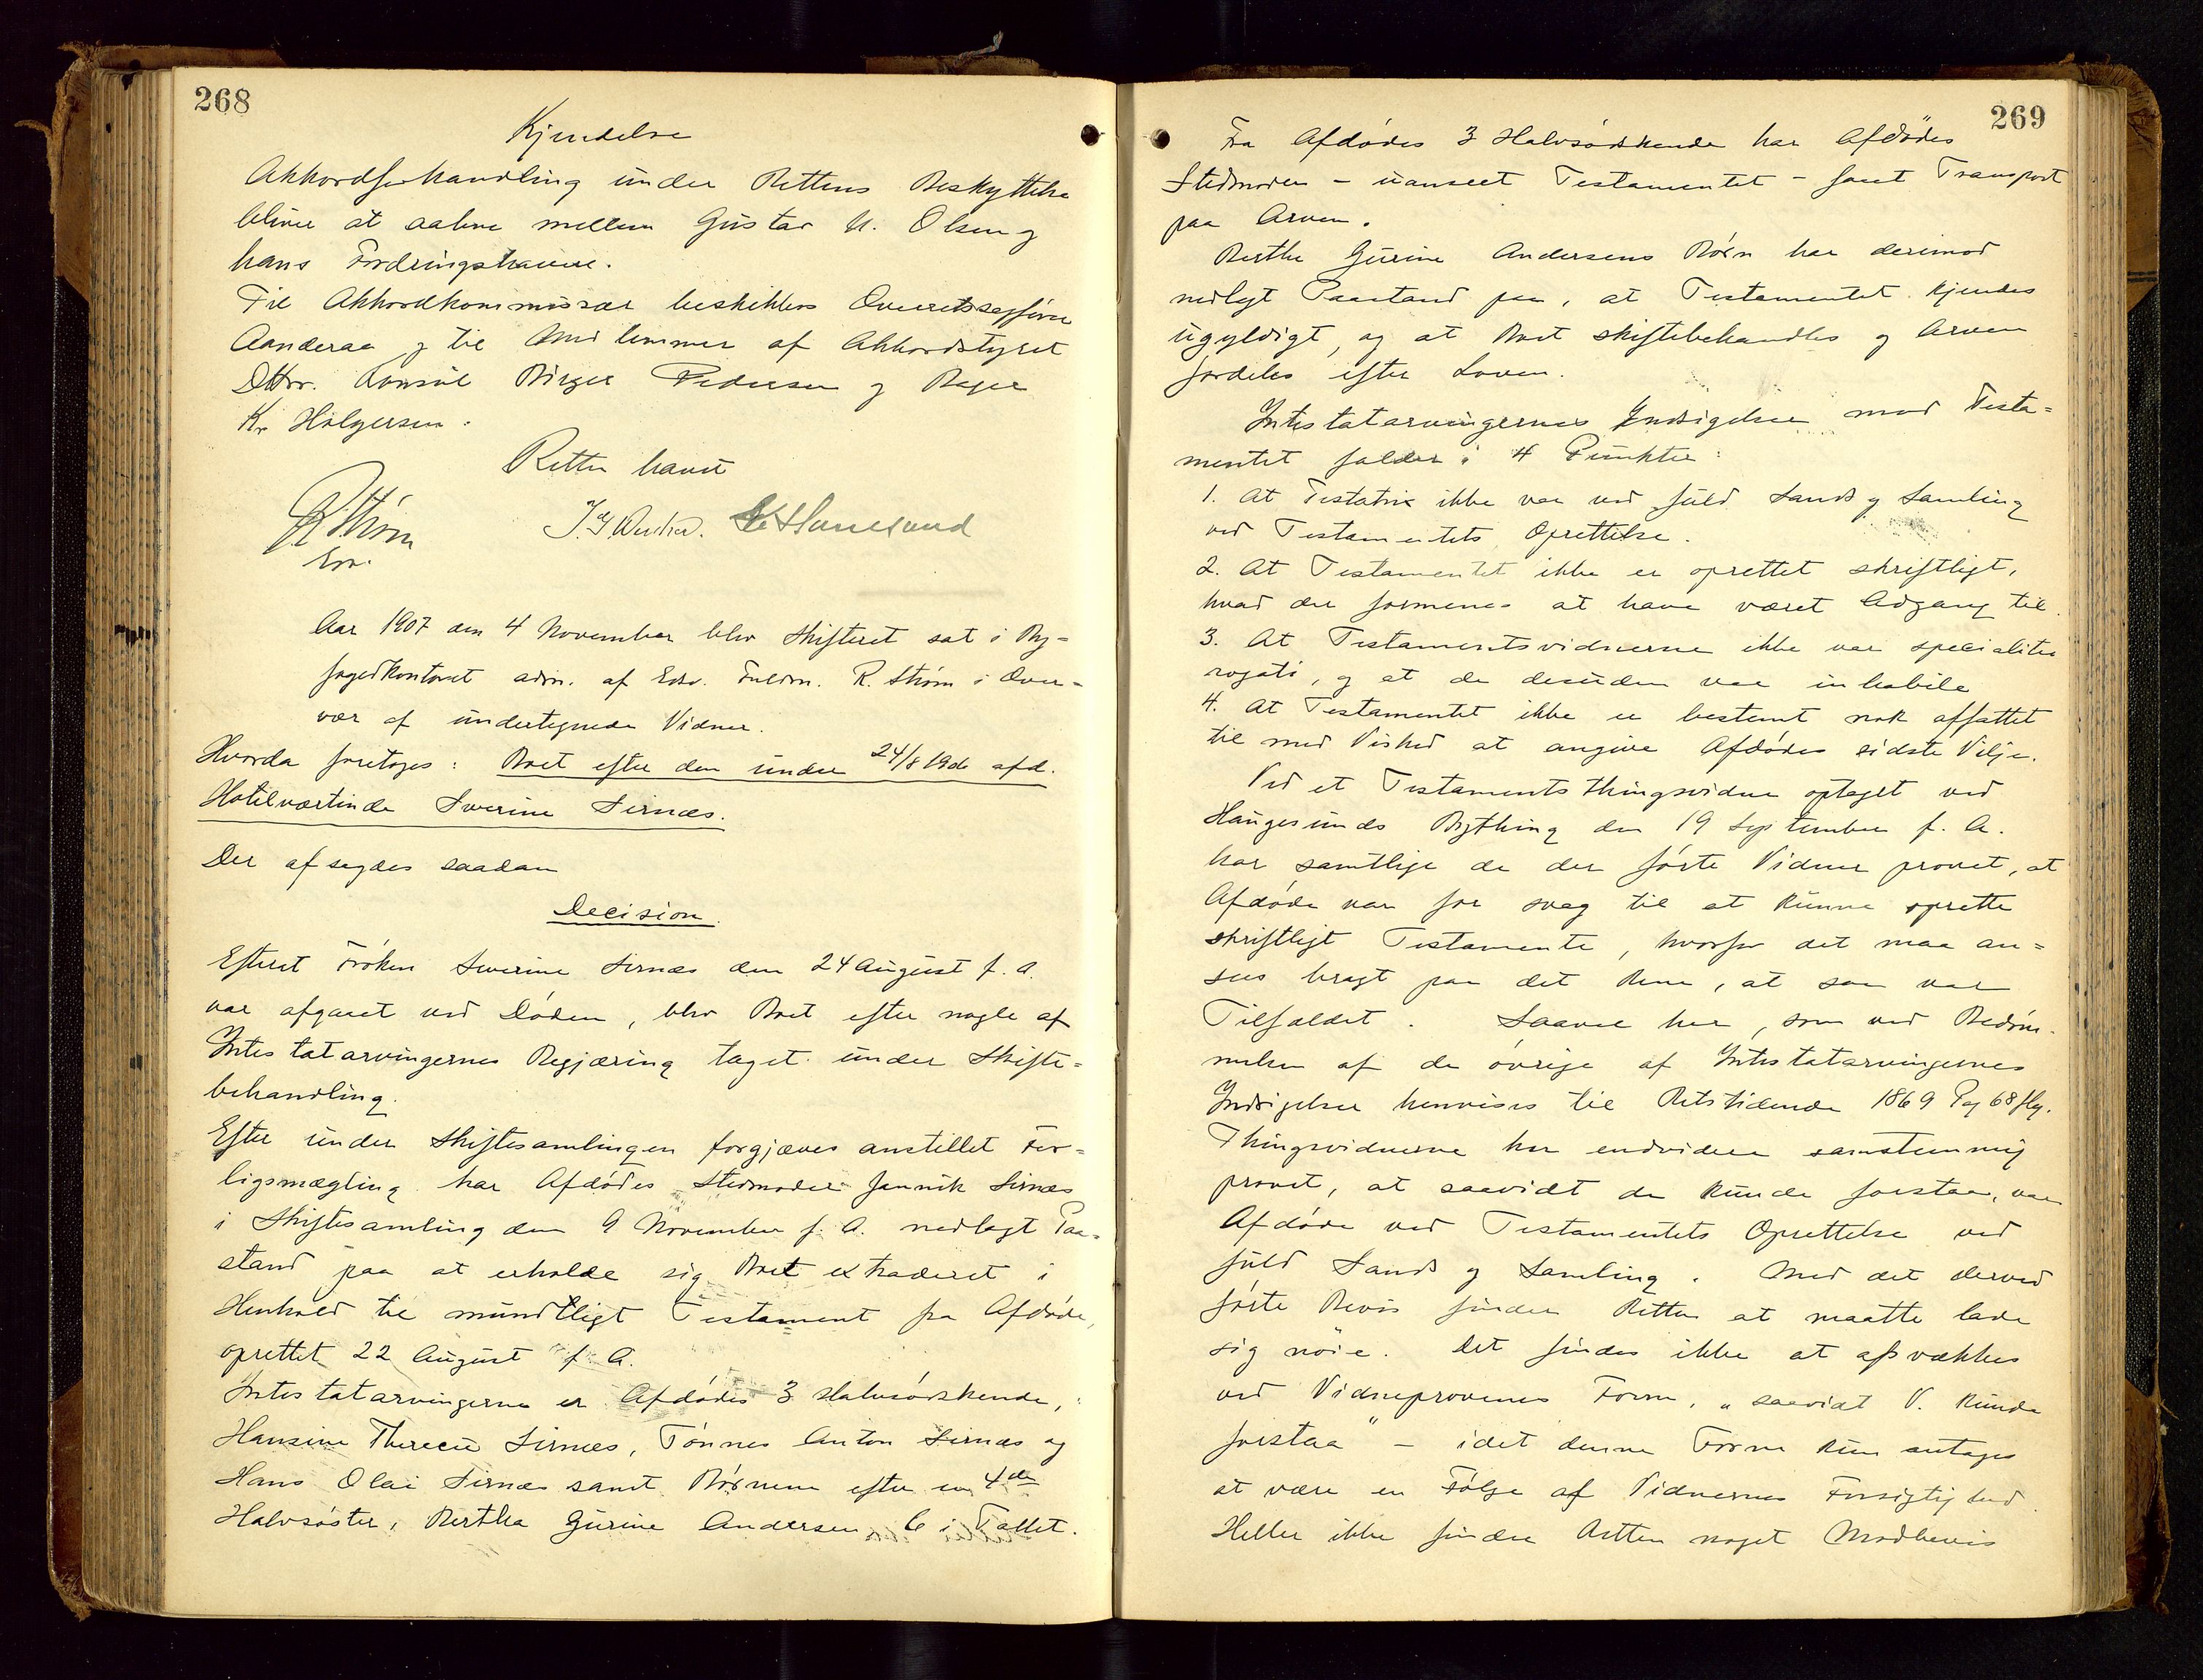 268
Kjendelse
Akkordforhandling under Rettens Beskyttelse
bliver at aabne mellem Gustav N. Olsen og
hans Fordringshavere.
Til Akkordkommissær beskikkes Overretssagfører
Aanderaa og til Medlemmer af Akkordstyret
DHrr. Konsul Birger Pedersen og Bager
Kr Holgersen.
Retten hævet
R Strøm
Edv.
Aar 1907 den 4 November blev Skifteret sat i By=
fogedkontoret adm. af Edsv. Fuldm. R. Strøm i Over=
vær af undertegnede Vidner.
Hvorda foretoges: Boet efter den under 24/8 1906 afd.
Hotelværtinde Severine Sirnæs.
Der afsagdes saadan
Decision.
Efterat Frøken Severine Sirnæs den 24 August f. A.
var afgaaet ved Døden, blev Boet efter nogle af
Intestatarvingernes Begjæring taget under Skifte=
behandling.
Efter under Skiftesamlingen forgjæves anstillet For=
ligsmægling har Afdødes Stedmoder Jannik Sirnæs
i Skiftesamling den 9 November f. A. nedlagt Paa=
stand paa at erholde sig Boet extraderet i
Henhold til mundtligt Testament fra Afdøde,
oprettet 22 August f. A.
Intestatarvingerne er Afdødes 3 Halvsødskende,
Hansine Therecie Sirnæs, Tønnes Anton Sirnæs og
Hans Olai Sirnæs samt Børnene efter en 4de
Halvsøster, Bertha Gurine Andersen, 6 i Tallet.
269
Fra Afdødes 3 Halvsødskende har Afdødes
Stedmoder - uanseet Testamentet - faaet Transport
paa Arven.
Berthe Gurine Andersens Børn har derimod
nedlagt Paastand paa, at Testamentet kjendes
ugyldigt, og at Boet skiftebehandles og Arven
fordeles efter Loven.
Intestatarvingernes Indsigelser mod Testa=
mentet falder i 4 Punkter:
1. At Testatrix ikke var ved fuld Sands og Samling
ved Testamentets Oprettelse.
2. At Testamentet ikke er oprettet skriftligt,
hvad der formenes at have været Adgang til.
3. At Testamentsvidnerne ikke var specialiter
rogati, og at de desuden var inhabile
4. At Testamentet ikke er bestemt nok affattet
til med Vished at angive Afdødes sidste Vilje.
Ved et Testaments thingsvidne optaget ved
Haugesunds Bything den 19 September f. A.
har samtlige de der førte Vidner provet, at
Afdøde var for svag til at kunne oprette
skriftligt Testamente, hvorfor det maa an=
sees bragt paa det Rene, at saa var
Tilfældet. Saavel her, som ved Bedøm-
melsen af de øvrige af Intestatarvingernes
Indsigelser henvises til Retstidende 1869 Pag 68 flg.
Thingsvidnerne har endvidere samstemmig
provet, at saavidt de kunde forstaa, var
Afdøde ved Testamentets Oprettelse ved
fuld Sands og Samling. Med det derved
førte Bevis finder Retten at maatte lade
sig nøie. Det findes ikke at afsvækkes
ved Vidneprovenes Form, "saavidt V. kunde
forstaa" - idet denne Form kun antages
at være en Følge af Vidnernes Forsigtighed.
Heller ikke finder Retten noget Modbevis